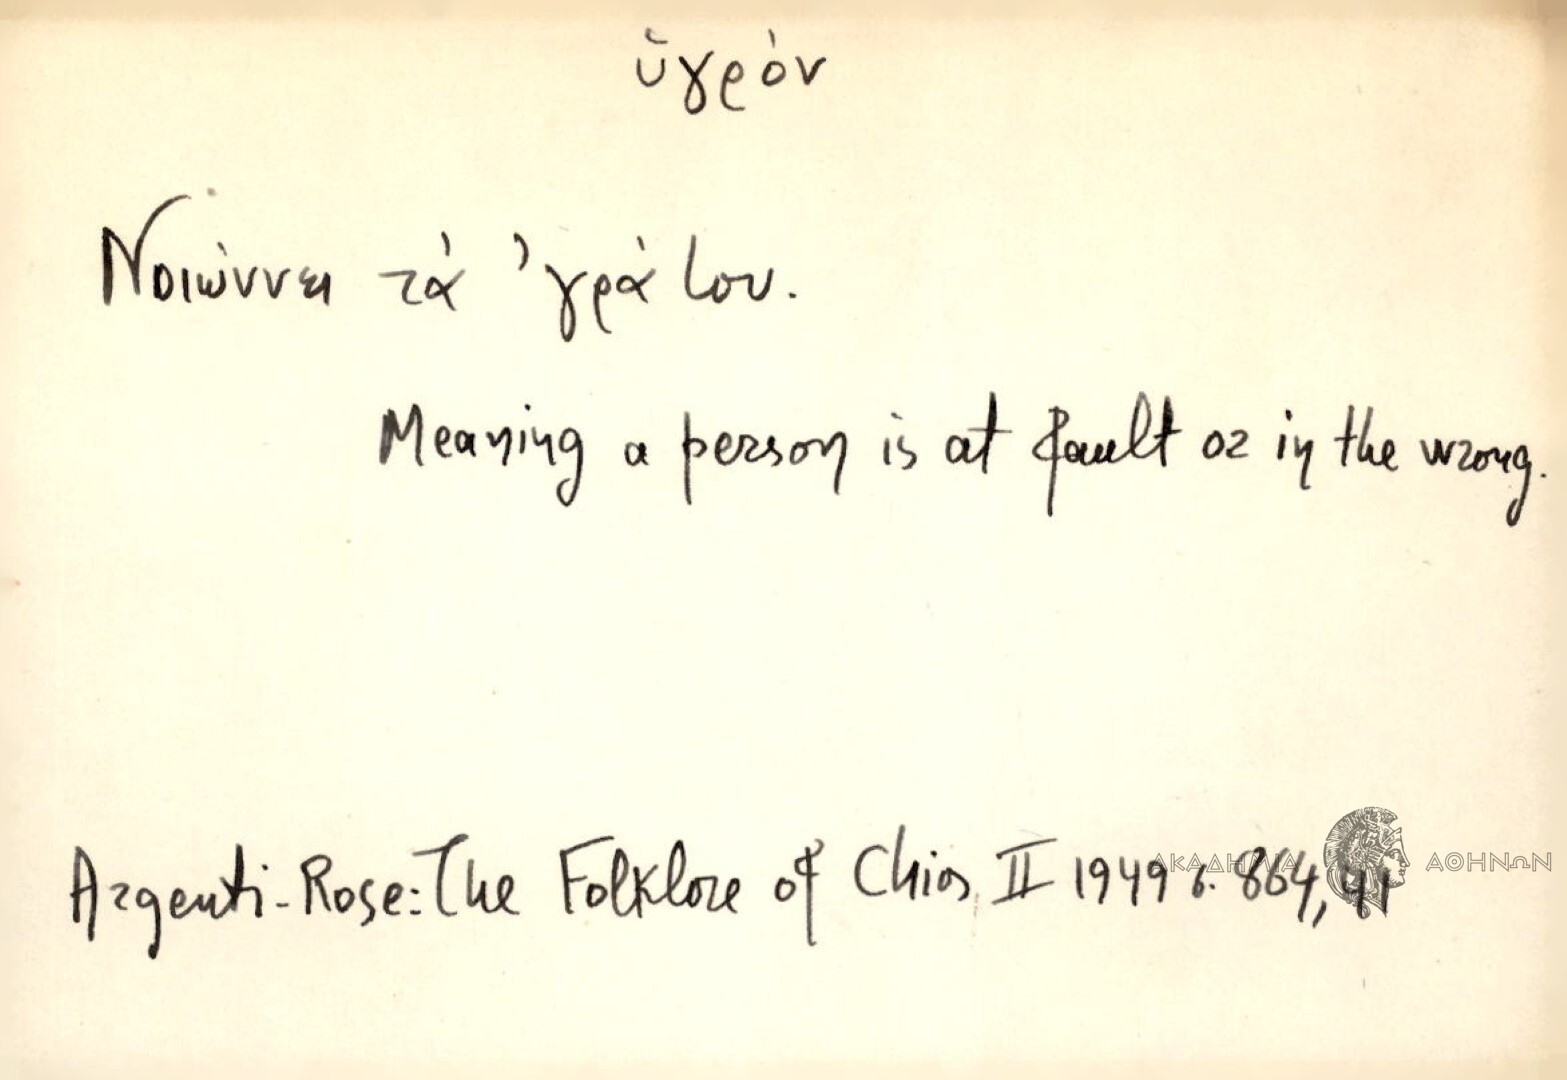 ὑγρὸν
Νοιώννει τὰ ᾿γρά του.
Meaning a person is at fault or in the wrong.
Argenti-Rose: The Folklore of Chios II 1949 σ. 864, 41
ΑΚΑΔΗΜΙΑ ΑΘΗΝΩΝ